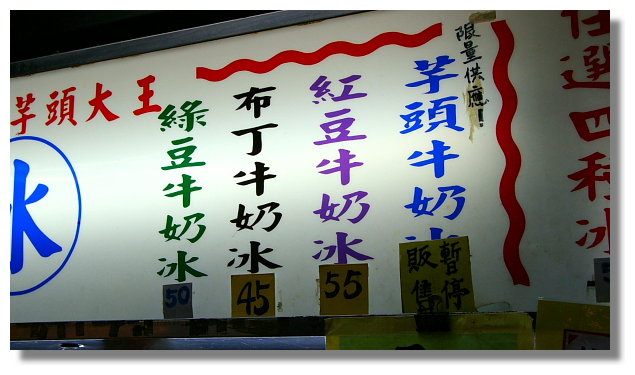 任選四種冰
限量供應！
芋頭牛奶冰
暫停販售
紅豆牛奶冰
55
布丁牛奶冰
45
綠豆牛奶冰
50
芋頭大王
冰